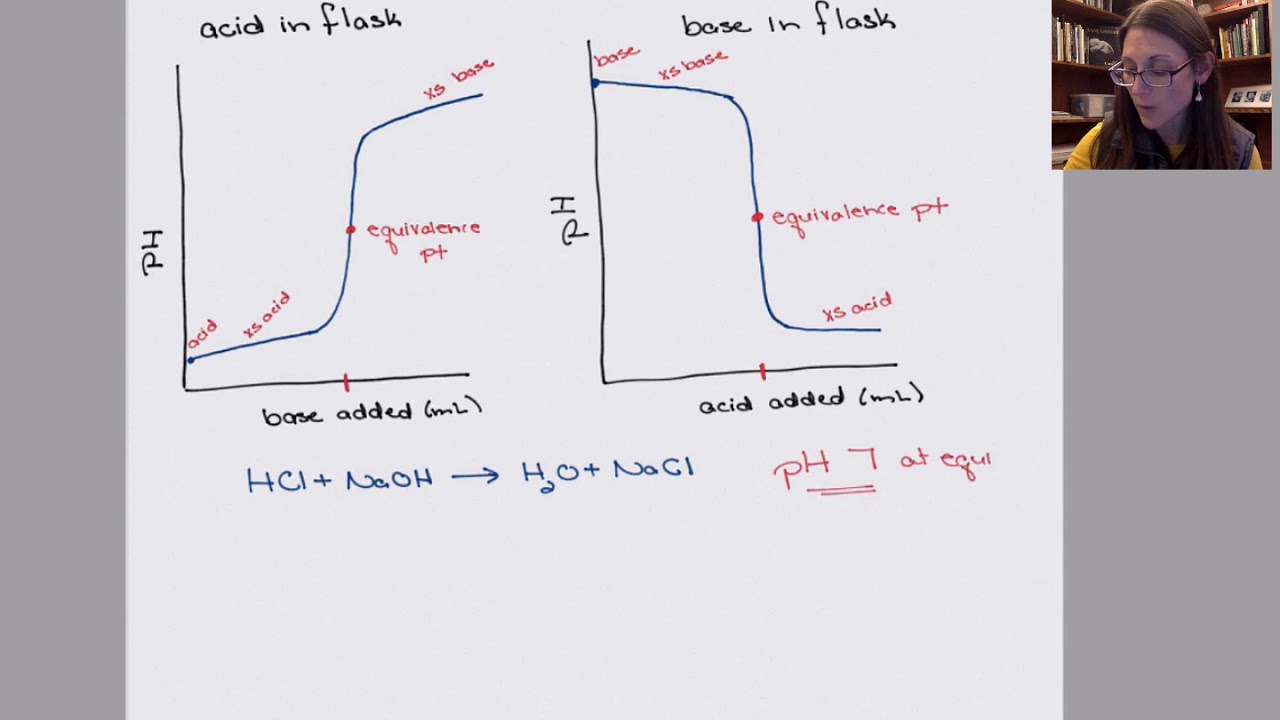 acid in flask
xs base
pH
equivalence
pt
acid
xs acid
base added (mL)
base in flask
base
xs base
pH
equivalence pt
xs acid
acid added (mL)
HCl + NaOH → H₂O + NaCl
pH 7 at equi